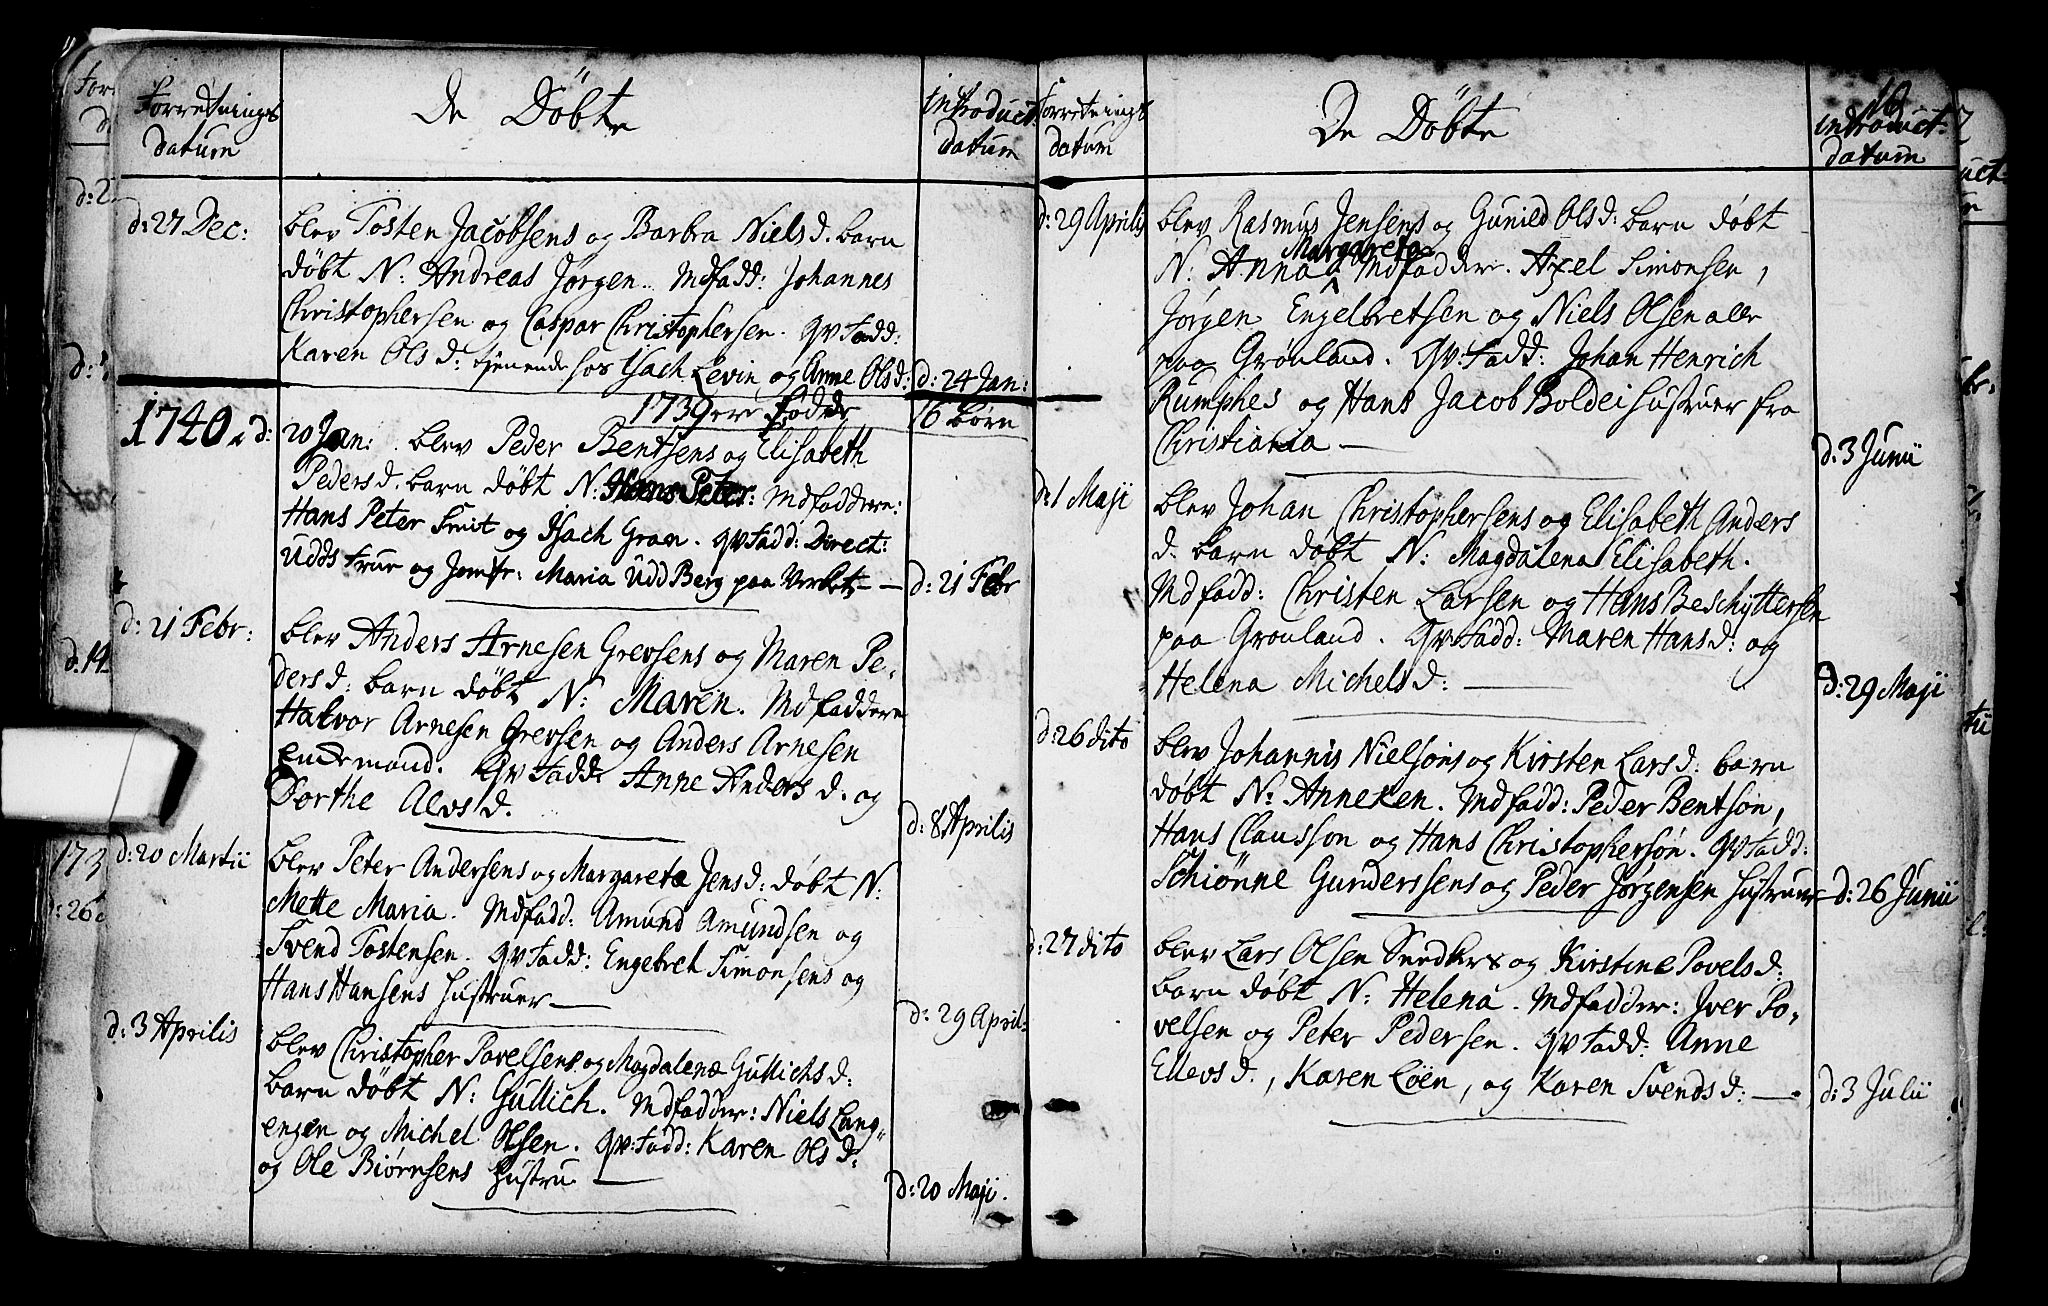 Forretnings
datum
De Döbte
introduct:
datum
d: 27 Dec:
blev Tösten Jacobsens og Barbra Nielsd. barn
döbt N: Andreas Jørgen. Mdfadd: Johannes
Christophersen og Caspar Christophersen. qvfadd:
Karen Olsd: tjenende hos Isach Levin og Anne Olsd:
d: 24 Jan:
1739 ere fødde
16 börn
1740. d:
20 Jan: blev Peder Bentsens og Elisabeth
Pedersd. barn döbt N: Hans Peter: Mdfaddere:
Hans Peter Smit og Isach Gran. qvfadd: Direct:
Udds frue og Jomfr: Maria Udd Berg paa Verket —
d: 21 Febr
d: 21 Febr:
blev Anders Arnesen Grevsens og Maren Pe-
dersd: barn döbt N: Maren. Mdfaddere
Halvor Arnesen Grevsen og Anders Arnesen
Endemand. Qvfadde Anne Andersd. og
Dorthe Alvsd.
d: 8 Aprilis
d: 20 Martii
blev Peter Andersens og Margareta Jensd: döbt N:
Mette Maria. Mdfadd: Amund Amundsen og
Svend Tostensen. qvfadd: Engebret Simonsens og
Hans Hansens Hustruer —
d: 29 April:
d: 3 Aprilis
blev Christopher Povelsens og Magdalena Gullichsd:
barn döbt N: Gullich. Mdfadder: Niels Lang-
engen og Michel Olsen. qv:fadd: Karen Olsd:
og Ole Biørnsens Hustru —
d: 20 Maji.
Forretnings
datum
De Döbte
16
introduct:
datum
d: 29 Aprilis
blev Rasmus Jensens og Gunild Olsd: barn döbt
Margareta
N: Anna Mdfadder. Axel Simonsen,
Jørgen Engelbretsen og Niels Olsen alle
paa Grønland. Qv:fadd: Johan Henrich
Rumphes og Hans Jacob Boldei Hustruer fra
Christiania —
d: 3 Junii
d: 1 Maji
blev Johan Christophersens og Elisabeth Anders
d. barn döbt N: Magdalena Elisabeth.
Mdfadd: Christen Larsen og Hans Beschyttersen
paa Grønland. Qv:fadd: Maren Hansd: og
Helena Michelsd: —
d: 29 Maji
d: 26 dito
blev Johannis Nielsöns og Kirsten Larsd: barn
döbt N: Anneken. Mdfadd: Peder Bentsön,
Hans Clausson og Hans Christophersön. qvfadd:
Schiönne Gunderssens og Peder Jørgensen Hustruer —
d: 26 Junii
d: 27 dito
blev Lars Olsen Snedkers og Kirstine Povelsd:
barn döbt N: Helena. Mdfadder: Jver Po-
velsen og Peter Pedersen. qvfadd: Anne
Ellevsd., Karen Löen, og Karen Svendsd: —
d: 3 Julii